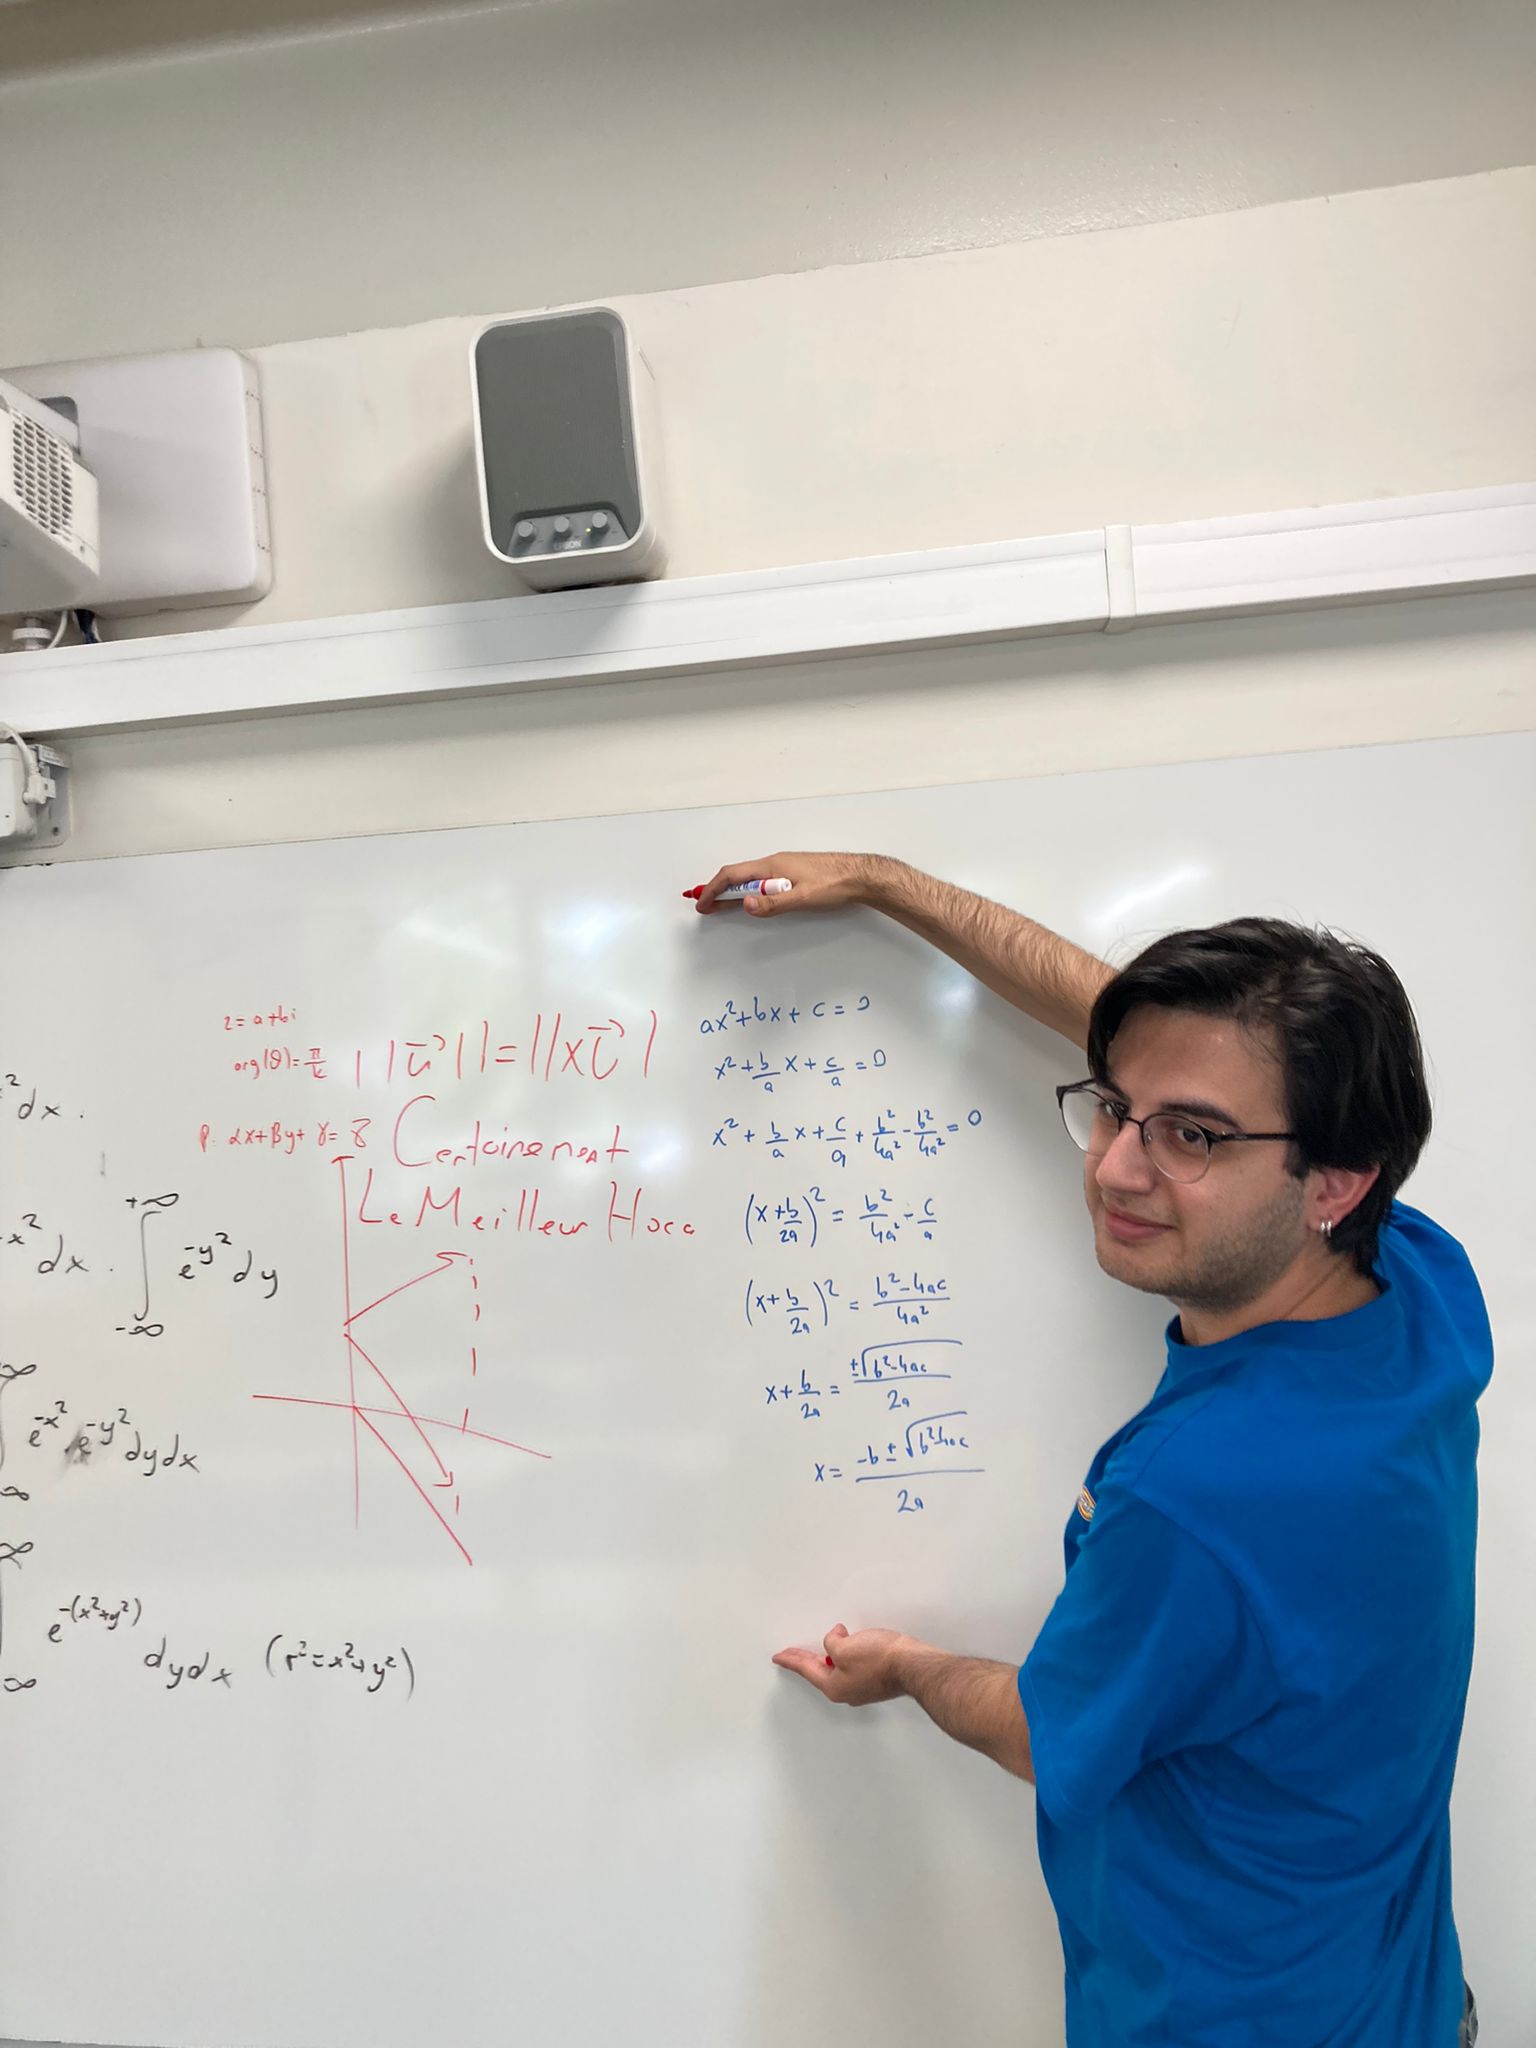 ² dx .
x² dx . ∫ e^-y² dy
+∞
-∞
∞
e^-x² e^-y² dydx
∞
∞
e^-(x²+y²) dydx (r²=x²+y²)
∞
z = a+bi
arg(θ)= π/k
| |u⃗| | = | |xu⃗ |
P: αx+βy+γ= z
Certainement
Le Meilleur Hoca
ax²+bx+c=0
x²+b/a x+c/a=0
x²+b/a x+c/a+b²/4a²-b²/4a²=0
(x+b/2a)²=b²/4a²-c/a
(x+b/2a)²=b²-4ac/4a²
x+b/2a=±√b²-4ac/2a
x=-b±√b²-4ac/2a
EPSON